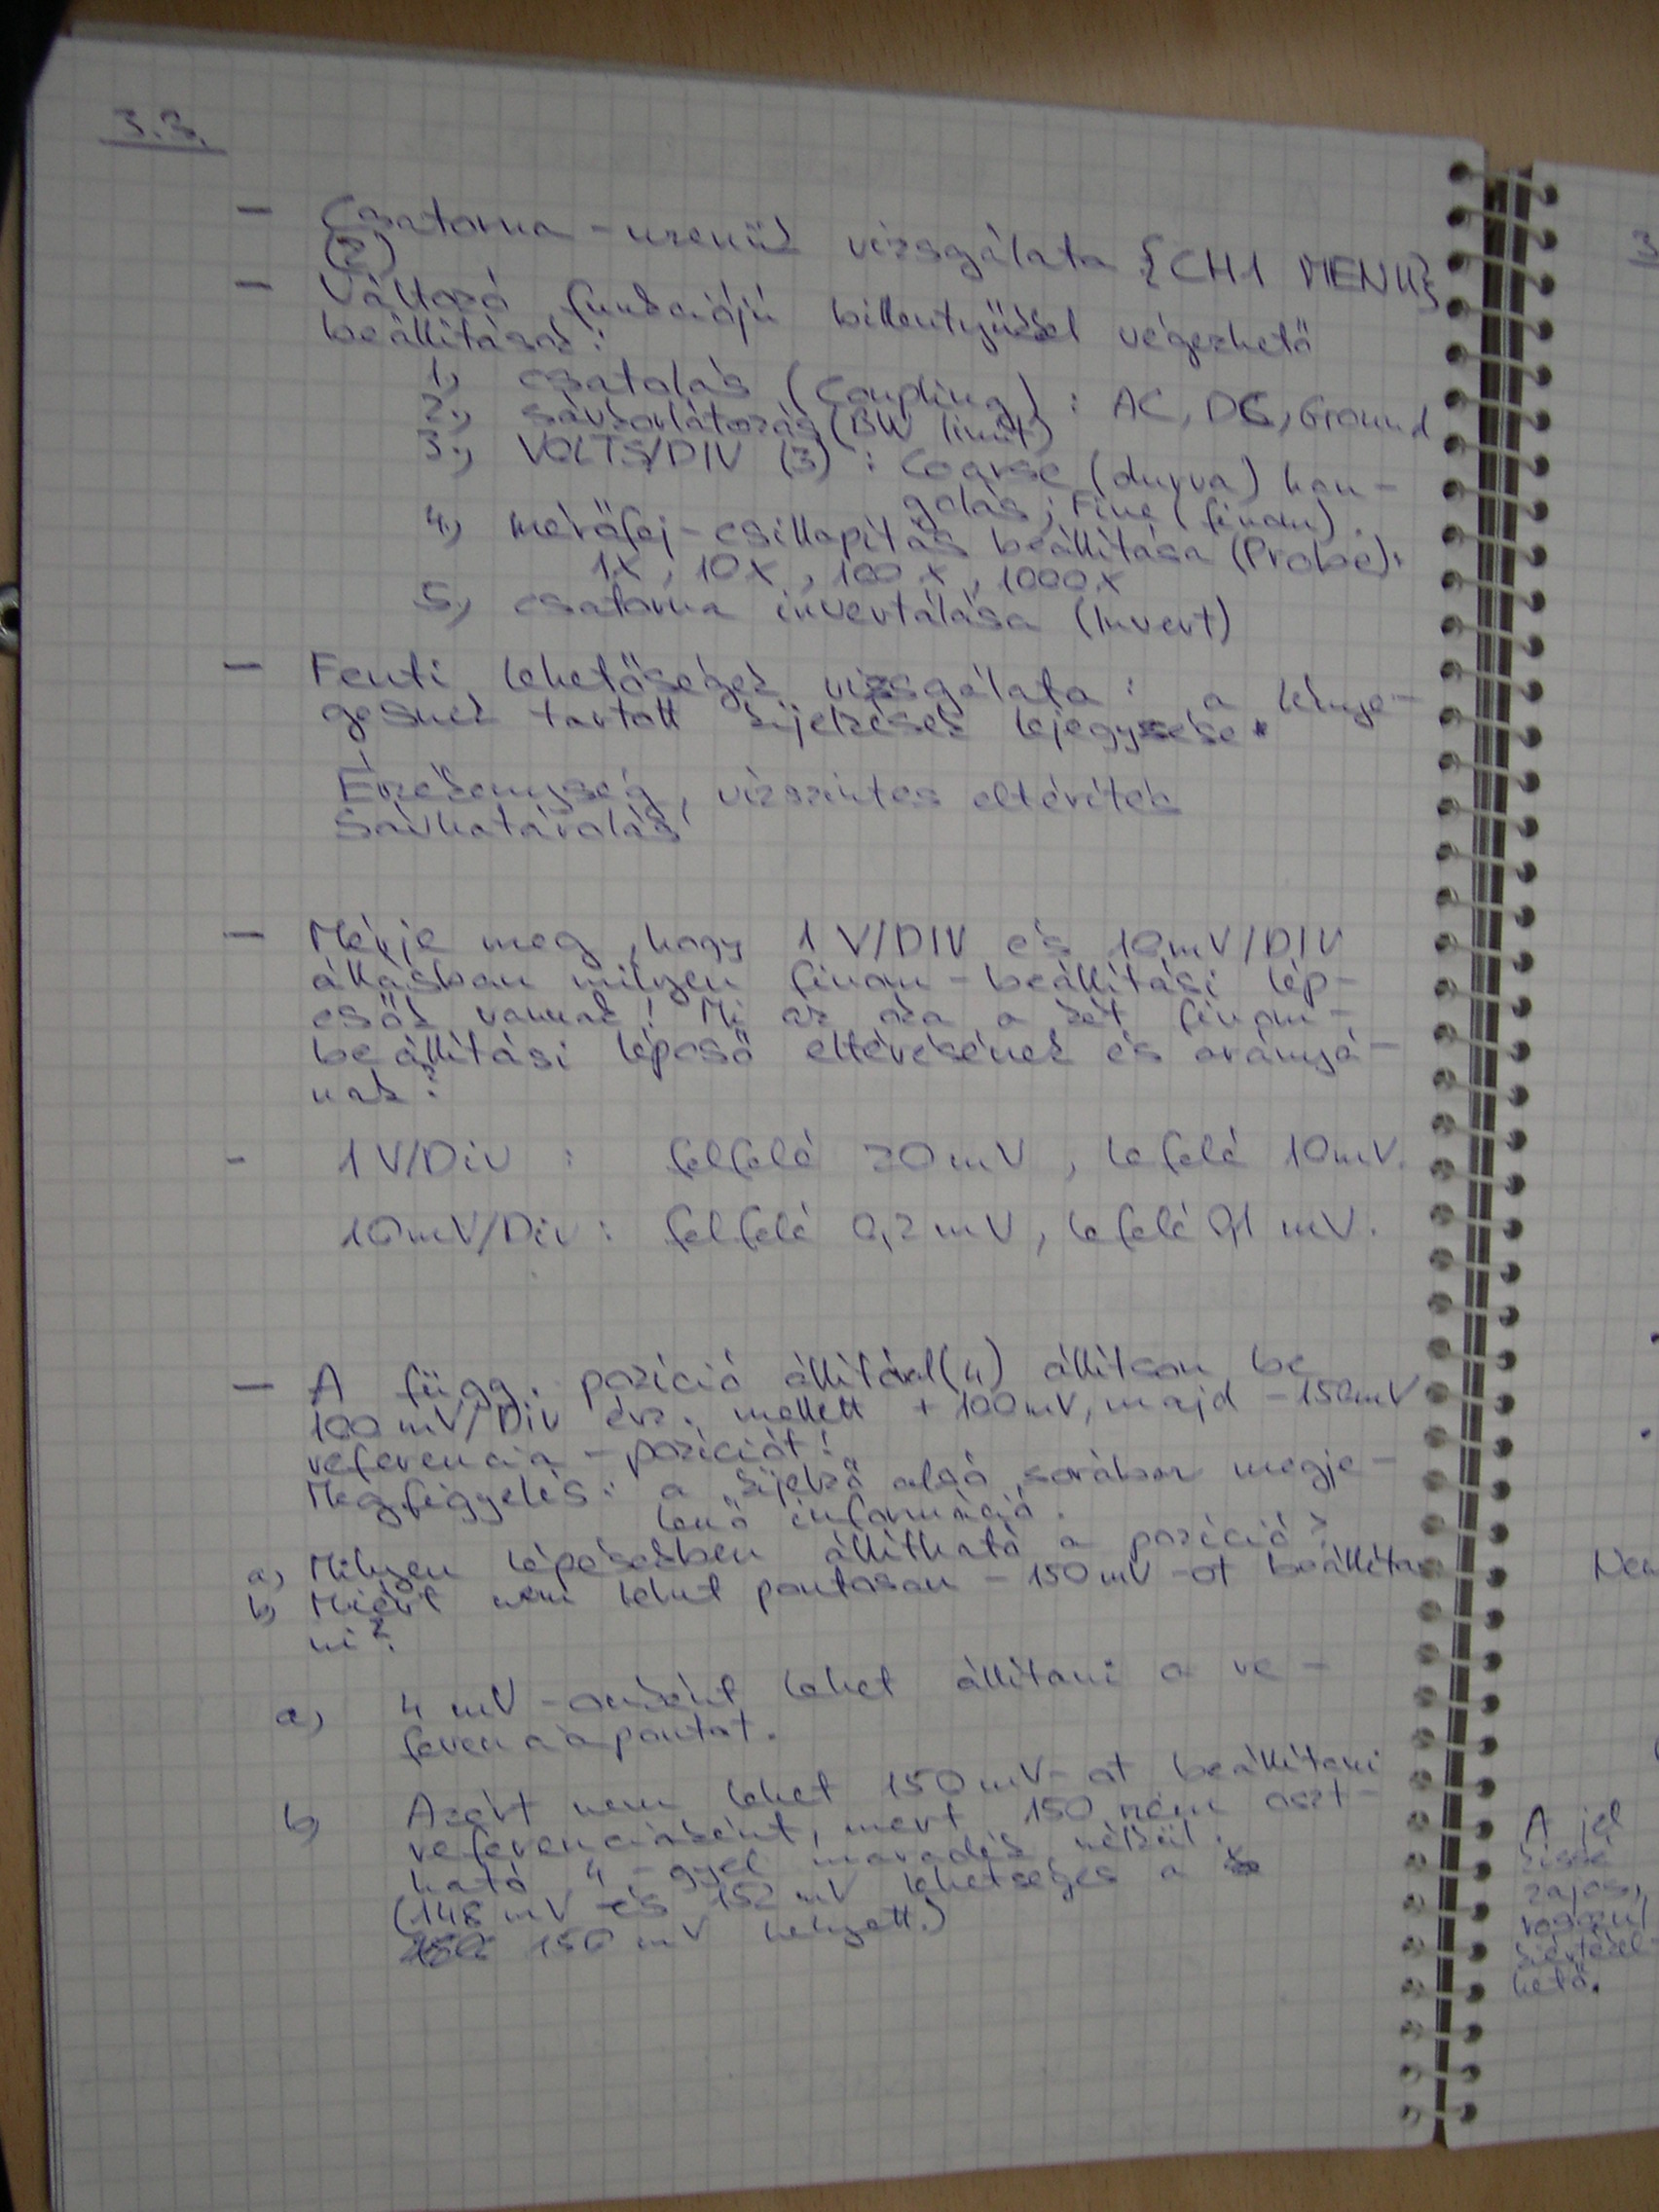 3.3.
- Csatorna-menük vizsgálata {CH1 MENU}
(2)
- Változó funkciójú billentyűkkel végezhető
beállítások:
1, csatolás (Coupling): AC, DC, Ground
2., sávkorlátozás (BW limit)
3., VOLTS/DIV (3): Coarse (durva) han-
golás; Fine (finom).
4., mérőfej-csillapítás beállítása (Probe):
1X, 10X, 100X, 1000X
5., csatorna invertálása (Invert)
- Fenti lehetőségek vizsgálata: a lénye-
gesnek tartott kijelzések lejegyzése.
Érzékenység, vízszintes eltérítés
Sávhatárolás
- Mérje meg, hogy 1 V/DIV és 10mV/DIV
állásban milyen finom-beállítási lép-
csők vannak! Mi az oka a két finom-
beállítási lépcső eltérésének és arányá-
nak?
- 1 V/Div: felfelé 20mV, lefelé 10mV.
10mV/Div: felfelé 0,2mV, lefelé 0,1mV.
- A függ. pozíció állítóval (4) állítson be
100mV/Div érz. mellett +100mV, majd -150mV
referencia-pozíciót!
Megfigyelés: a kijelző alsó sorában megje-
lenő információ.
a, Milyen lépésekben állítható a pozíció?
b, Miért nem lehet pontosan -150mV-ot beállíta
ni?
a, 4 mV-onként lehet állítani a re-
ferenciapontot.
b, Azért nem lehet 150mV-ot beállítani
referenciaként, mert 150 nem oszt-
ható 4-gyel maradék nélkül.
(148 mV és 152 mV lehetséges a
150 mV helyett.)
3
Nem
A jel
zajos,
hető.